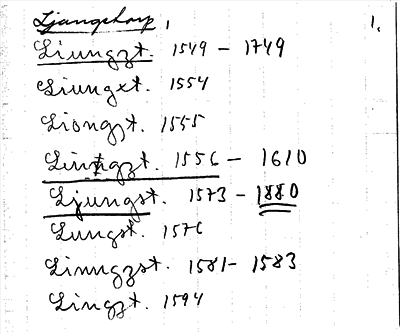 Ljungstorp, 1.
Liungzt. 1549 - 1749
Liungxt. 1554
Liongzt. 1555
Lintgzt. 1556 - 1610
Ljungst. 1573 - 1880
Lungst. 1576
Linngzst. 1581 - 1583
Lingzt. 1594